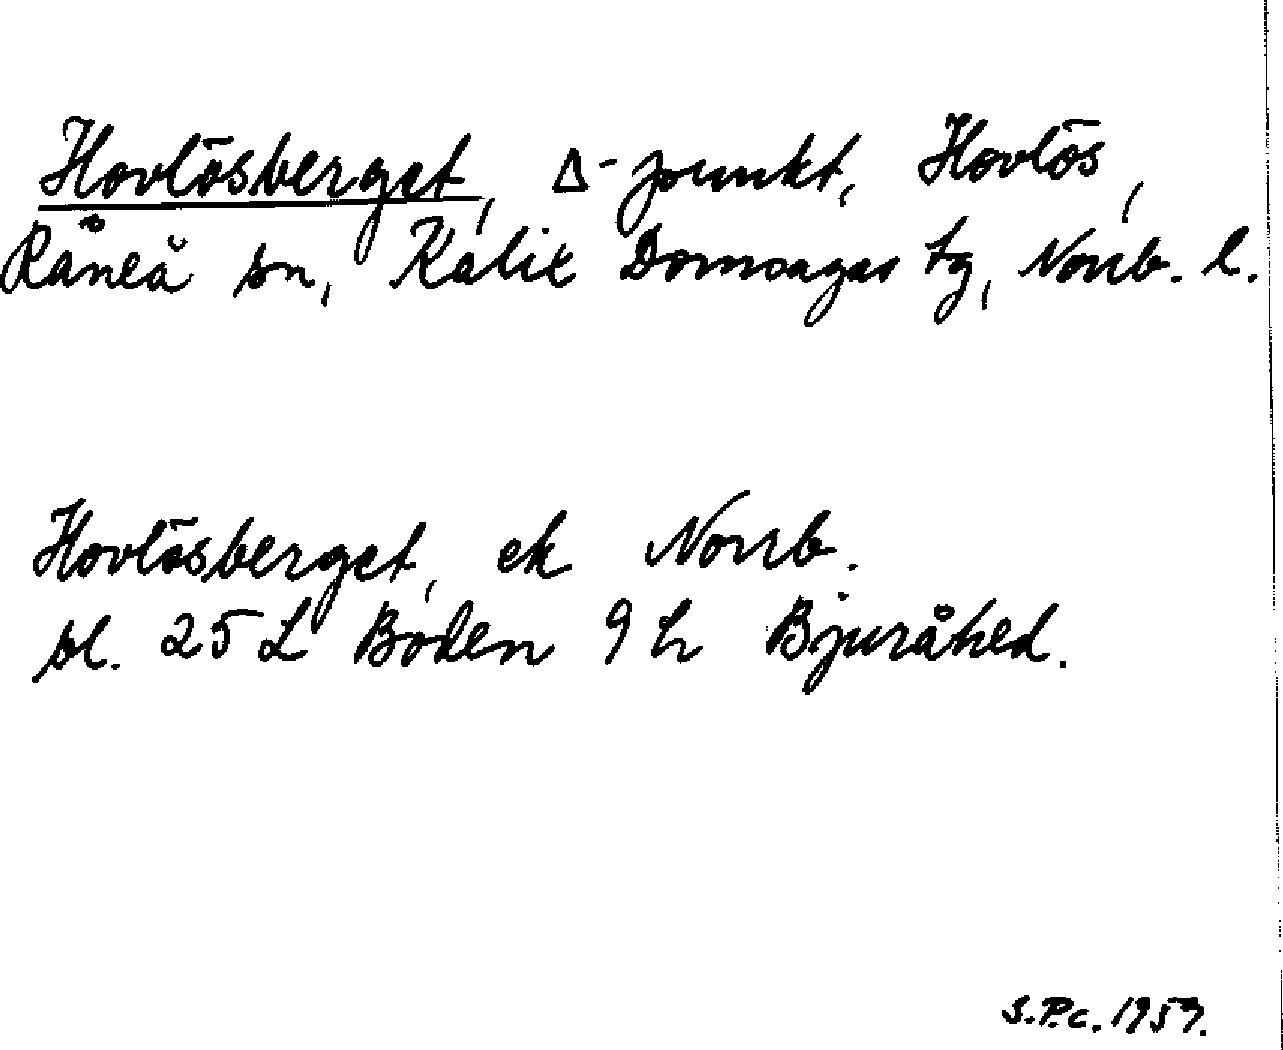 Hovlösberget, Δ-punkt, Hovlös,
Råneå sn, Kalix Domsagas tg, Norrb. l.
Hovlösberget, ek Norrb.
bl. 25 L Boden 9 h Bjuråhed.
S.P.c. 1957.